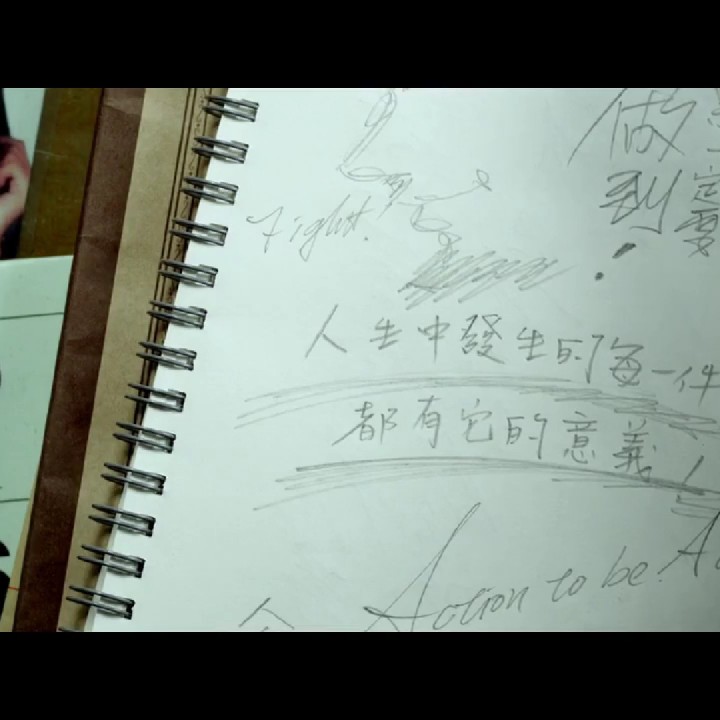 做
到
Fight!
人生中發生的每一件
都有它的意義
Action to be A